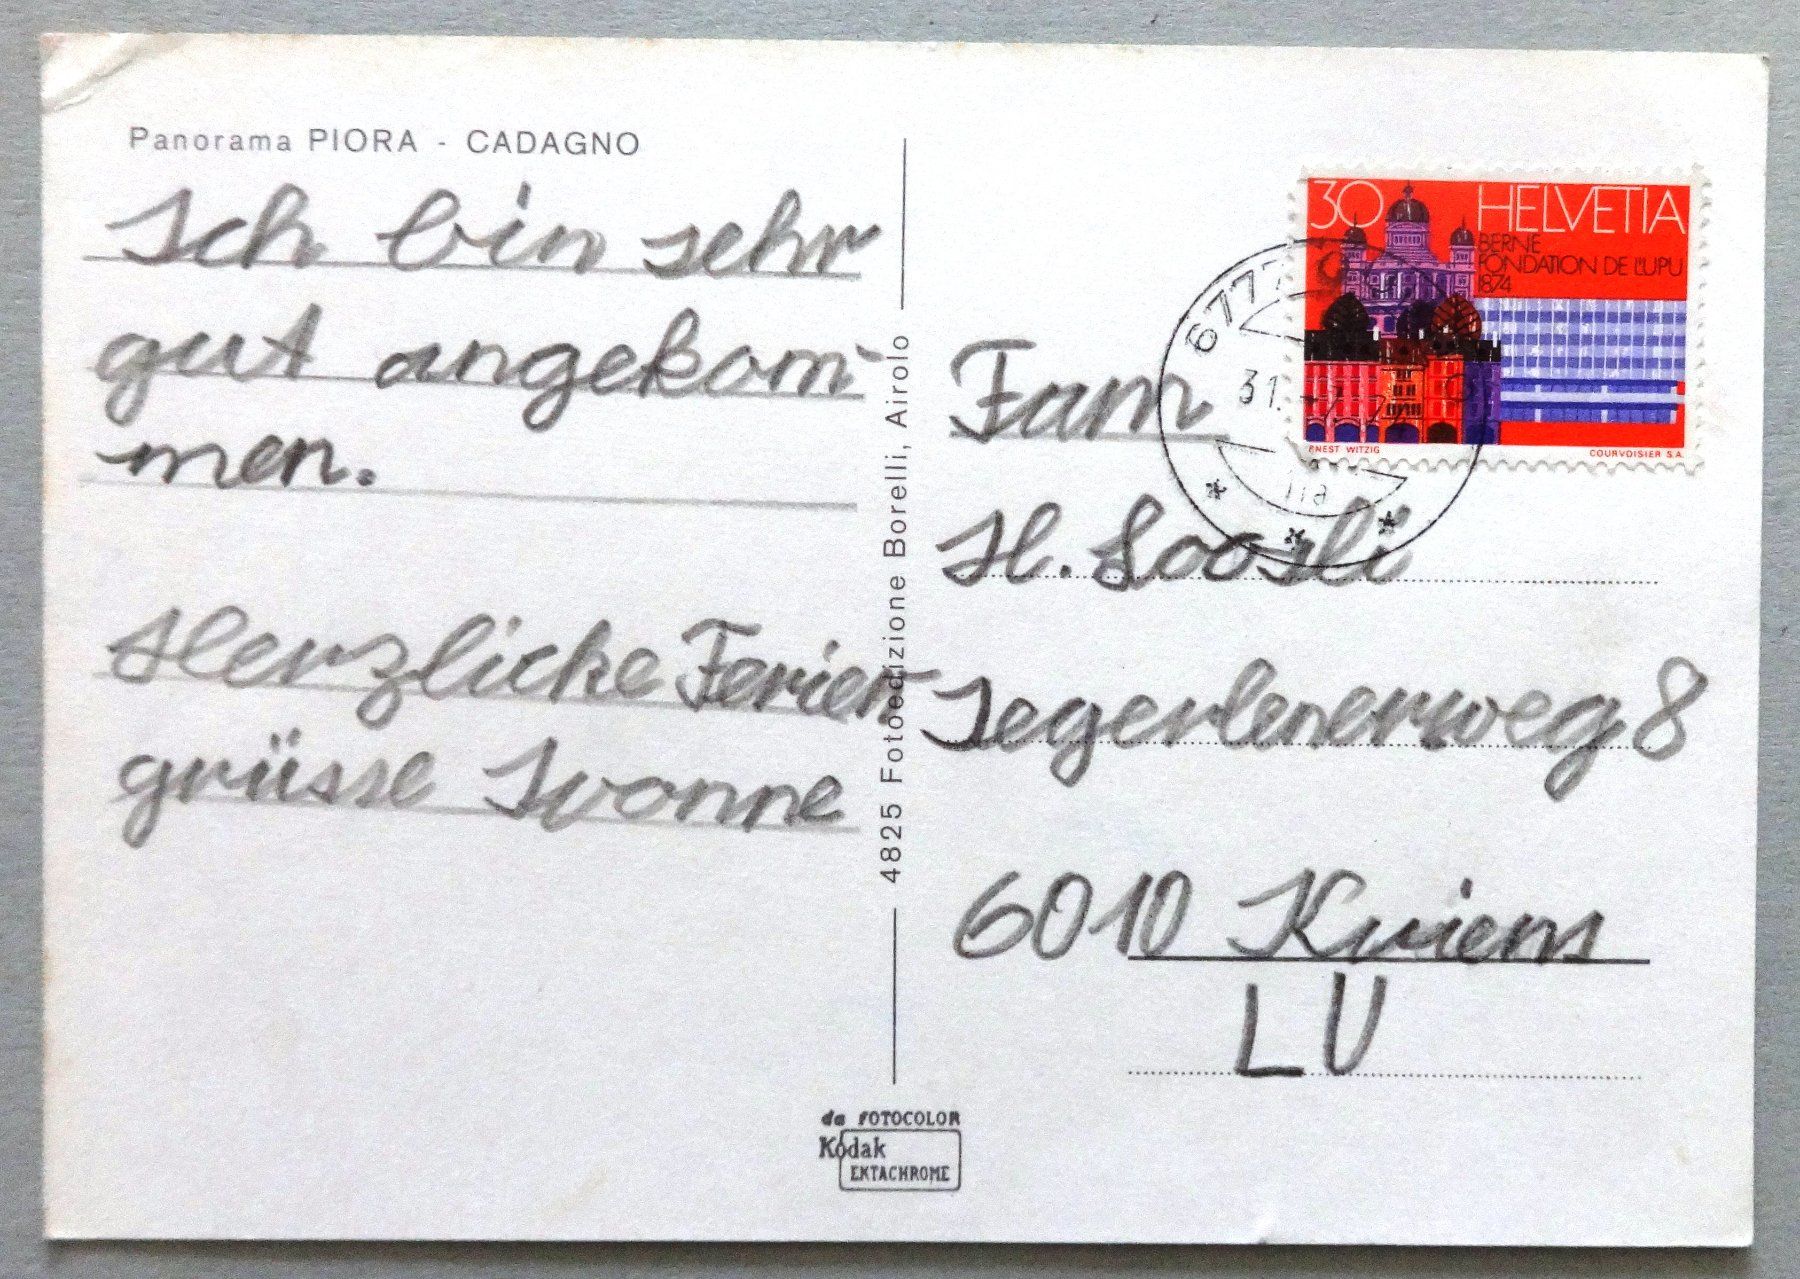 Panorama PIORA - CADAGNO
Ich bin sehr
gut angekom-
men.
Herzliche Ferien
grüsse Ivonne
4825 Fotoedizione Borelli, Airolo
30 HELVETIA
BERNE
FONDATION DE L'UPU
1874
ERNEST WITZIG
COURVOISIER S.A.
6777
31.
Fam
H. Loosli
Jegerlenerweg 8
6010 Kriens
LU
da FOTOCOLOR
Kodak
EKTACHROME